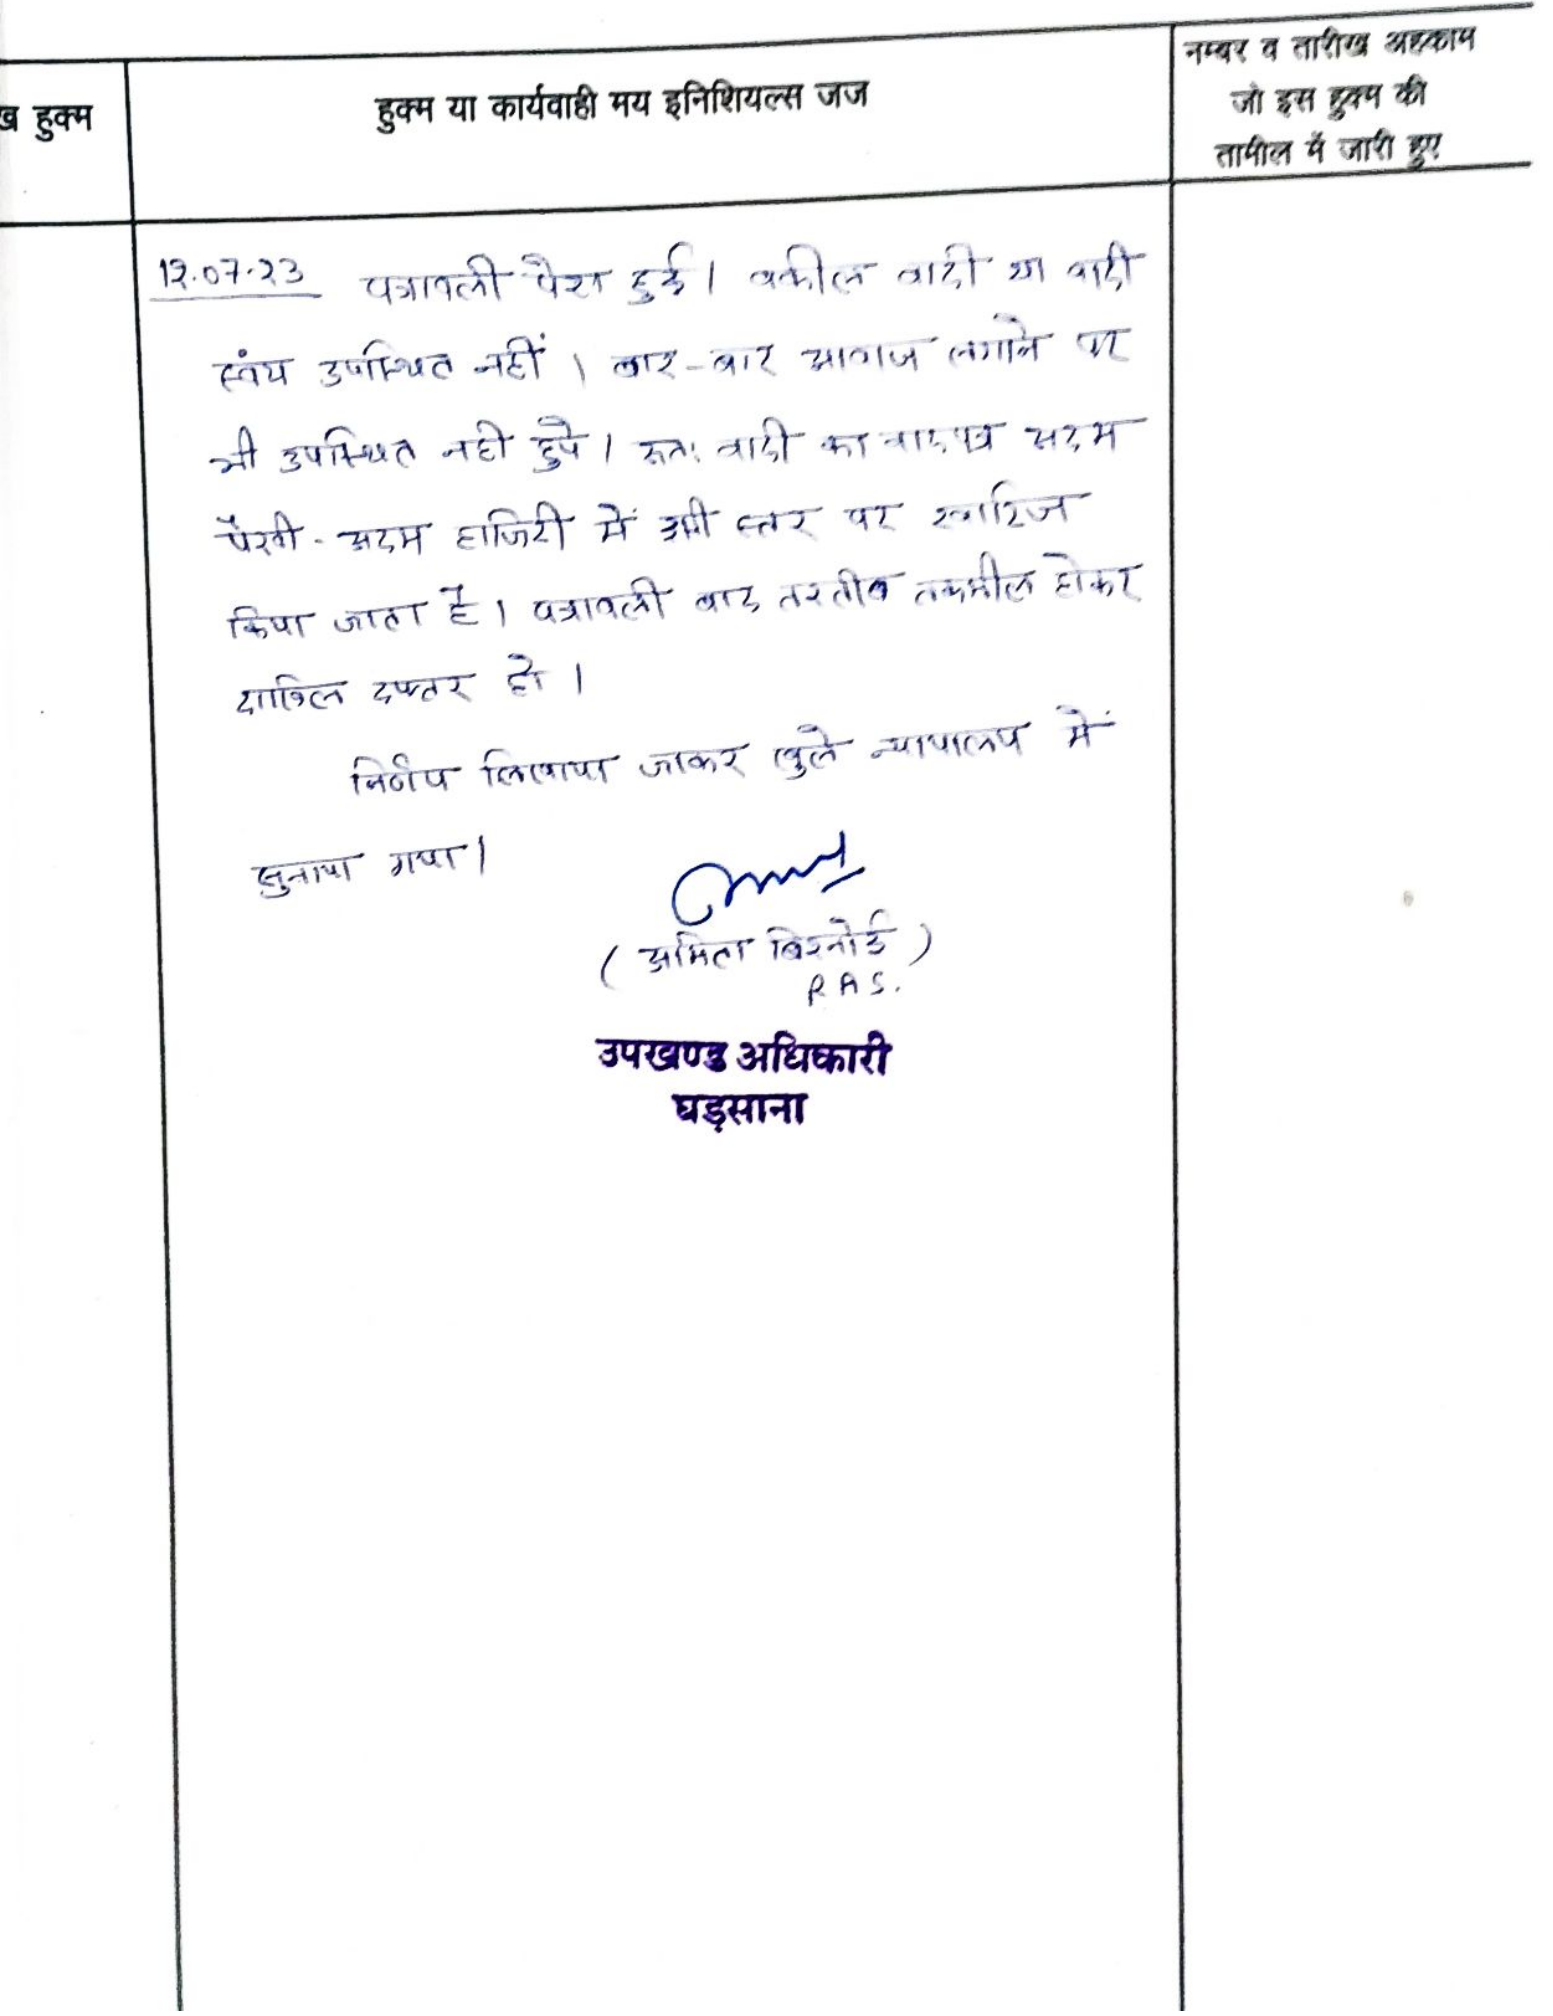 ख हुक्म
हुक्म या कार्यवाही मय इनिशियल्स जज
नम्बर व तारीख अहकाम
जो इस हुक्म की
तामील में जारी हुए
12.07.23 पत्रावली पेश हुई। वकील वादी या वादी
स्वंय उपस्थित नहीं। बार-बार आवाज लगाने पर
भी उपस्थित नही हुये। अतः वादी का वादपत्र अदम
पैरवी - अदम हाजिरी में इसी स्तर पर खारिज
किया जाता है। पत्रावली बाद तरतीब तकमील होकर
दाखिल दफ्तर हो।
निर्णय लिखाया जाकर खुले न्यायालय में
सुनाया गया।
(अमिता बिश्नोई)
RAS.
उपखण्ड अधिकारी
घड़साना